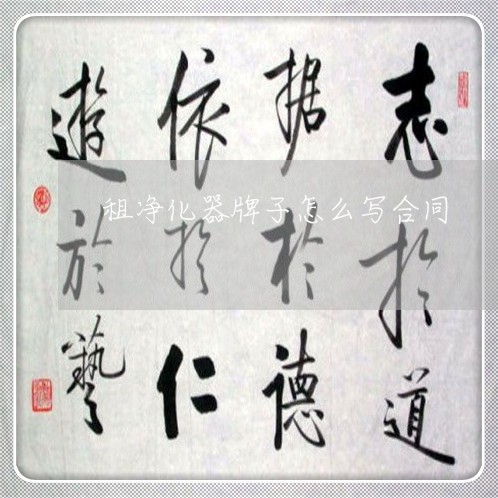 志於道
据於德
依於仁
遊於藝
租净化器牌子怎么写合同